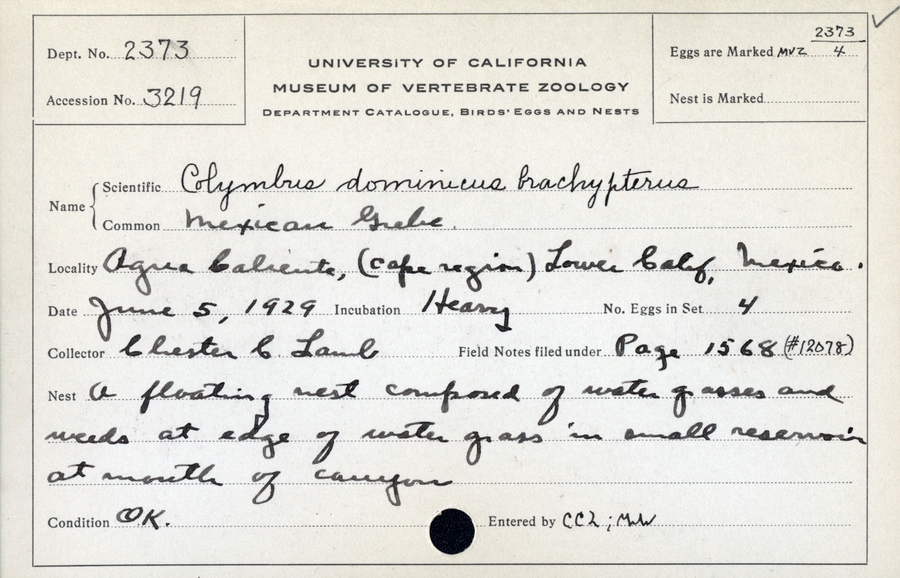 Dept. No. 2373
Accession No. 3219
UNIVERSITY OF CALIFORNIA
MUSEUM OF VERTEBRATE ZOOLOGY
DEPARTMENT CATALOGUE, BIRDS' EGGS AND NESTS
2373
Eggs are Marked MVZ 4
Nest is Marked
Name
Scientific Colymbus dominicus brachypterus
Common Mexican Grebe.
Locality Agua Caliente, (cape region) Lower Calif, Mexico.
Date June 5, 1929 Incubation Heavy No. Eggs in Set 4
Collector Chester C Lamb Field Notes filed under Page 1568 (#12078)
Nest A floating nest composed of water grasses and
weeds at edge of water grass in small reservoir
at mouth of canyon
Condition OK. Entered by CCL;